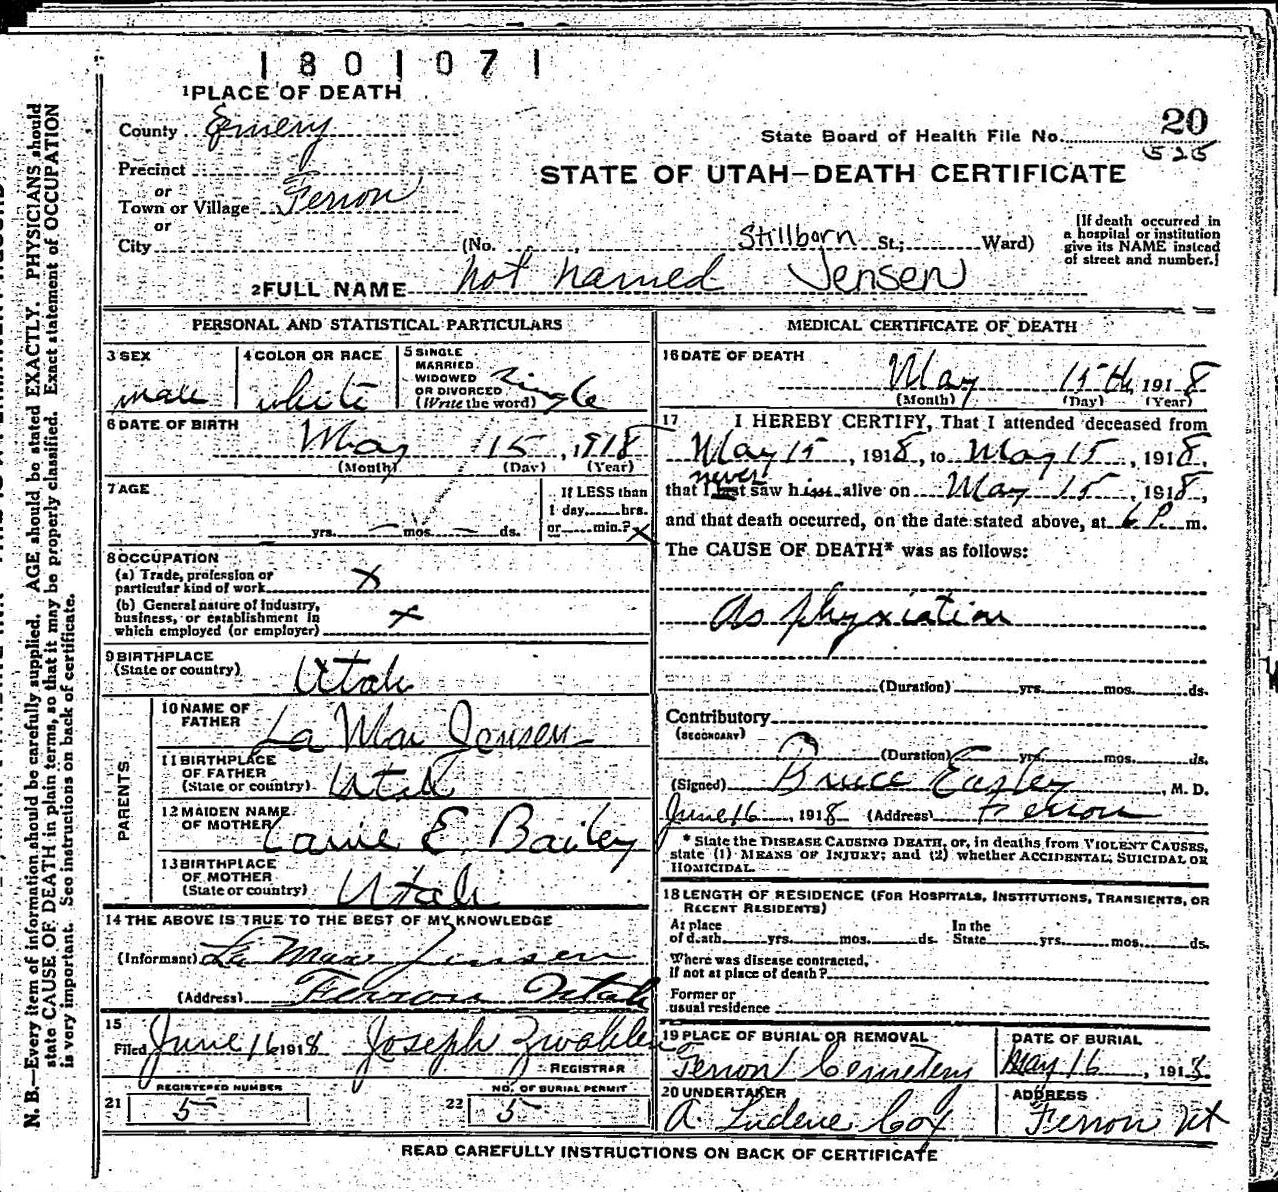 1801071
1 PLACE OF DEATH
20
County Emery
State Board of Health File No. 525
Precinct
STATE OF UTAH—DEATH CERTIFICATE
or
Town or Village Ferron
or
City (No. Stillborn St.; Ward)
[If death occurred in
a hospital or institution
give its NAME instead
of street and number.]
2 FULL NAME not named Jensen
PERSONAL AND STATISTICAL PARTICULARS
3 SEX
male
4 COLOR OR RACE
white
5 SINGLE
MARRIED
WIDOWED
OR DIVORCED
(Write the word) single
6 DATE OF BIRTH
May 15, 1918
(Month) (Day) (Year)
7 AGE
yrs. — mos. — ds.
If LESS than
1 day hrs.
or min.? x
8 OCCUPATION
(a) Trade, profession or
particular kind of work x
(b) General nature of Industry,
business, or establishment in
which employed (or employer) x
9 BIRTHPLACE
(State or country) Utah
PARENTS
10 NAME OF
FATHER La Mar Jensen
11 BIRTHPLACE
OF FATHER
(State or country) Utah
12 MAIDEN NAME
OF MOTHER Carrie E. Bailey
13 BIRTHPLACE
OF MOTHER
(State or country) Utah
14 THE ABOVE IS TRUE TO THE BEST OF MY KNOWLEDGE
(Informant) La Mar Jensen
(Address) Ferron Utah
15
Filed June 16 1918 Joseph Zwahlen
REGISTRAR
REGISTERED NUMBER
21 5
NO. OF BURIAL PERMIT
22 5
MEDICAL CERTIFICATE OF DEATH
16 DATE OF DEATH
May 15th, 1918
(Month) (Day) (Year)
17 I HEREBY CERTIFY, That I attended deceased from
May 15, 1918, to May 15, 1918,
never
that I last saw him alive on May 15, 1918,
and that death occurred, on the date stated above, at 6 P. m.
The CAUSE OF DEATH* was as follows:
Asphyxiation
(Duration) yrs. mos. ds.
Contributory
(SECONDARY)
(Duration) yrs. mos. ds.
(Signed) Bruce Easley, M. D.
June 16, 1918 (Address) Ferron
* State the DISEASE CAUSING DEATH, or, in deaths from VIOLENT CAUSES,
state (1) MEANS OF INJURY; and (2) whether ACCIDENTAL, SUICIDAL OR
HOMICIDAL.
18 LENGTH OF RESIDENCE (FOR HOSPITALS, INSTITUTIONS, TRANSIENTS, OR
RECENT RESIDENTS)
At place
of death yrs. mos. ds.
In the
State yrs. mos. ds.
Where was disease contracted,
if not at place of death?
Former or
usual residence
19 PLACE OF BURIAL OR REMOVAL
Ferron Cemetery
DATE OF BURIAL
May 16, 1918.
20 UNDERTAKER
A. Ludene Cox
ADDRESS
Ferron Ut
READ CAREFULLY INSTRUCTIONS ON BACK OF CERTIFICATE
N. B.—Every item of information should be carefully supplied. AGE should be stated EXACTLY. PHYSICIANS should
state CAUSE OF DEATH in plain terms, so that it may be properly classified. Exact statement of OCCUPATION
is very important. See instructions on back of certificate.